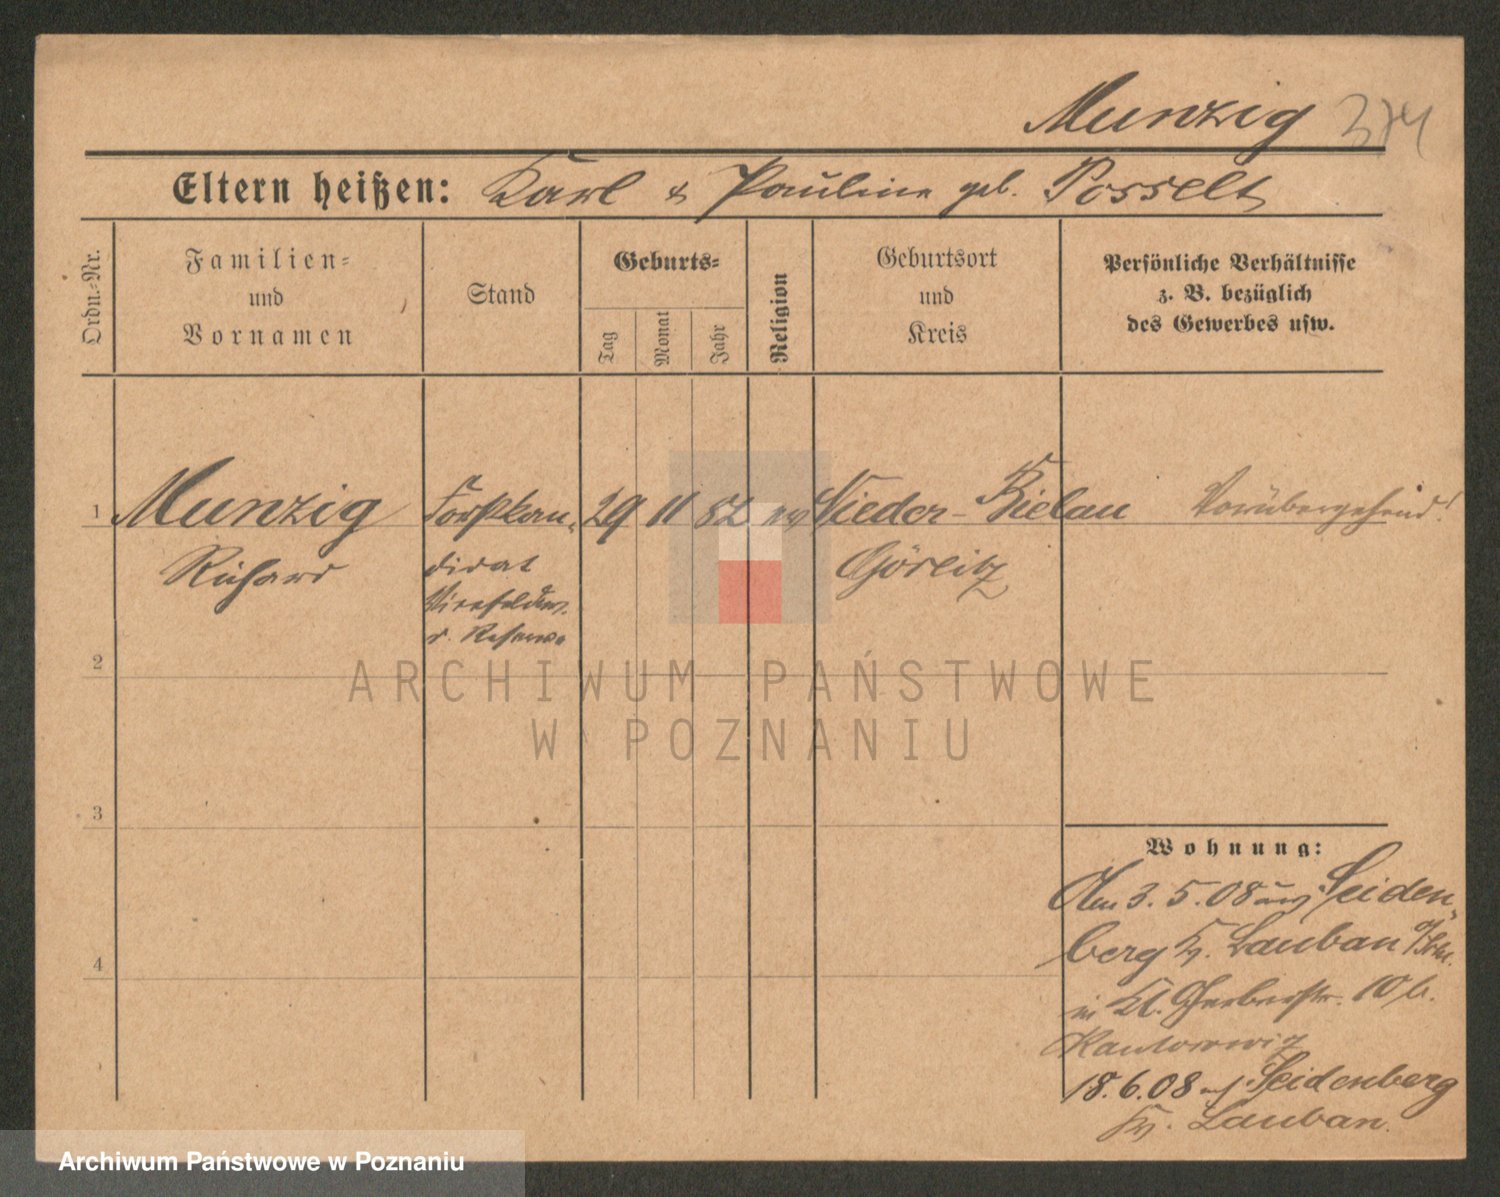 Munzig 374
Eltern heißen: Karl & Pauline geb. Posselt
Ordn.-Nr.
Familien-
und
Vornamen
Stand
Geburts-
Tag
Monat
Jahr
Religion
Geburtsort
und
Kreis
Persönliche Verhältnisse
z. B. bezüglich
des Gewerbes usw.
1 Munzig Forstkan- 29 11 82 ev Nieder-Bielau Vorübergehend!
Richard didat Görlitz
Vizefeldw.
d. Reserve
2
3
4
Wohnung:
Am 3. 5. 08 aus Seiden-
berg Kr. Lauban
in Kl. Gerberstr. 10 b.
Kantorowicz
18. 6. 08 auf Seidenberg
Kr. Lauban.
ARCHIWUM PAŃSTWOWE
W POZNANIU
Archiwum Państwowe w Poznaniu